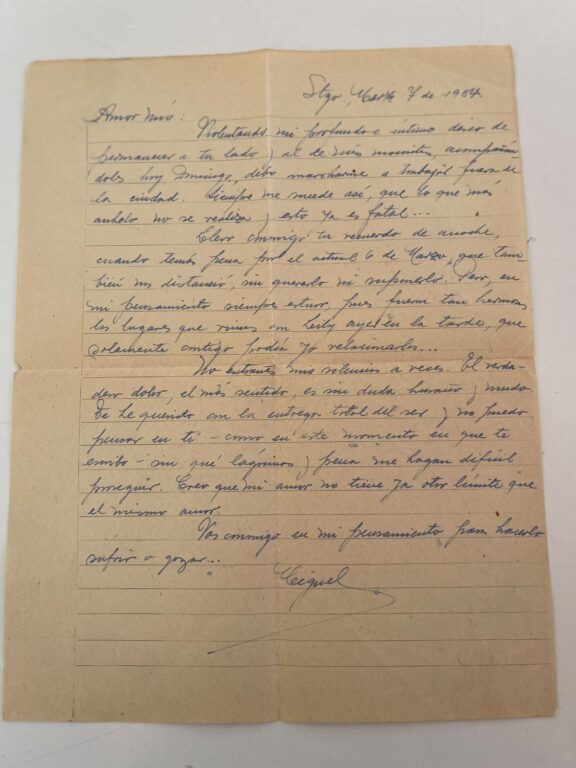 Stgo, Marzo 7 de 1954
Amor mío:
Violentando mi profundo e íntimo deseo de
permanecer a tu lado y al de mis , acompañán-
doles hoy Domingo, debo marcharme a trabajar fuera de
la ciudad. Siempre me sucede así, que lo que más
anhelo no se realiza y esto ya es fatal...
Llevo conmigo tu recuerdo de anoche,
cuando tenías pena por el actual 6 de Marzo, que tam
bién nos distanció, sin quererlo ni suponerlo. Pero, en
mi pensamiento siempre estuvo, pues fueron tan hermosos
los lugares que vimos con ayer en la tarde, que
solamente contigo podía yo relacionarlos...
No extrañes mis silencios a veces. El verda-
dero dolor, el más sentido, es sin duda huraño y mudo.
Te he querido con la entrega total del ser y no puedo
pensar en tí - como en este momento en que te
escribo - sin qué lágrimas y pena me hagan difícil
proseguir. Creo que mi amor no tiene ya otro límite que
el mismo amor.
Vas conmigo en mi pensamiento para hacerlo
sufrir o gozar...
Miguel